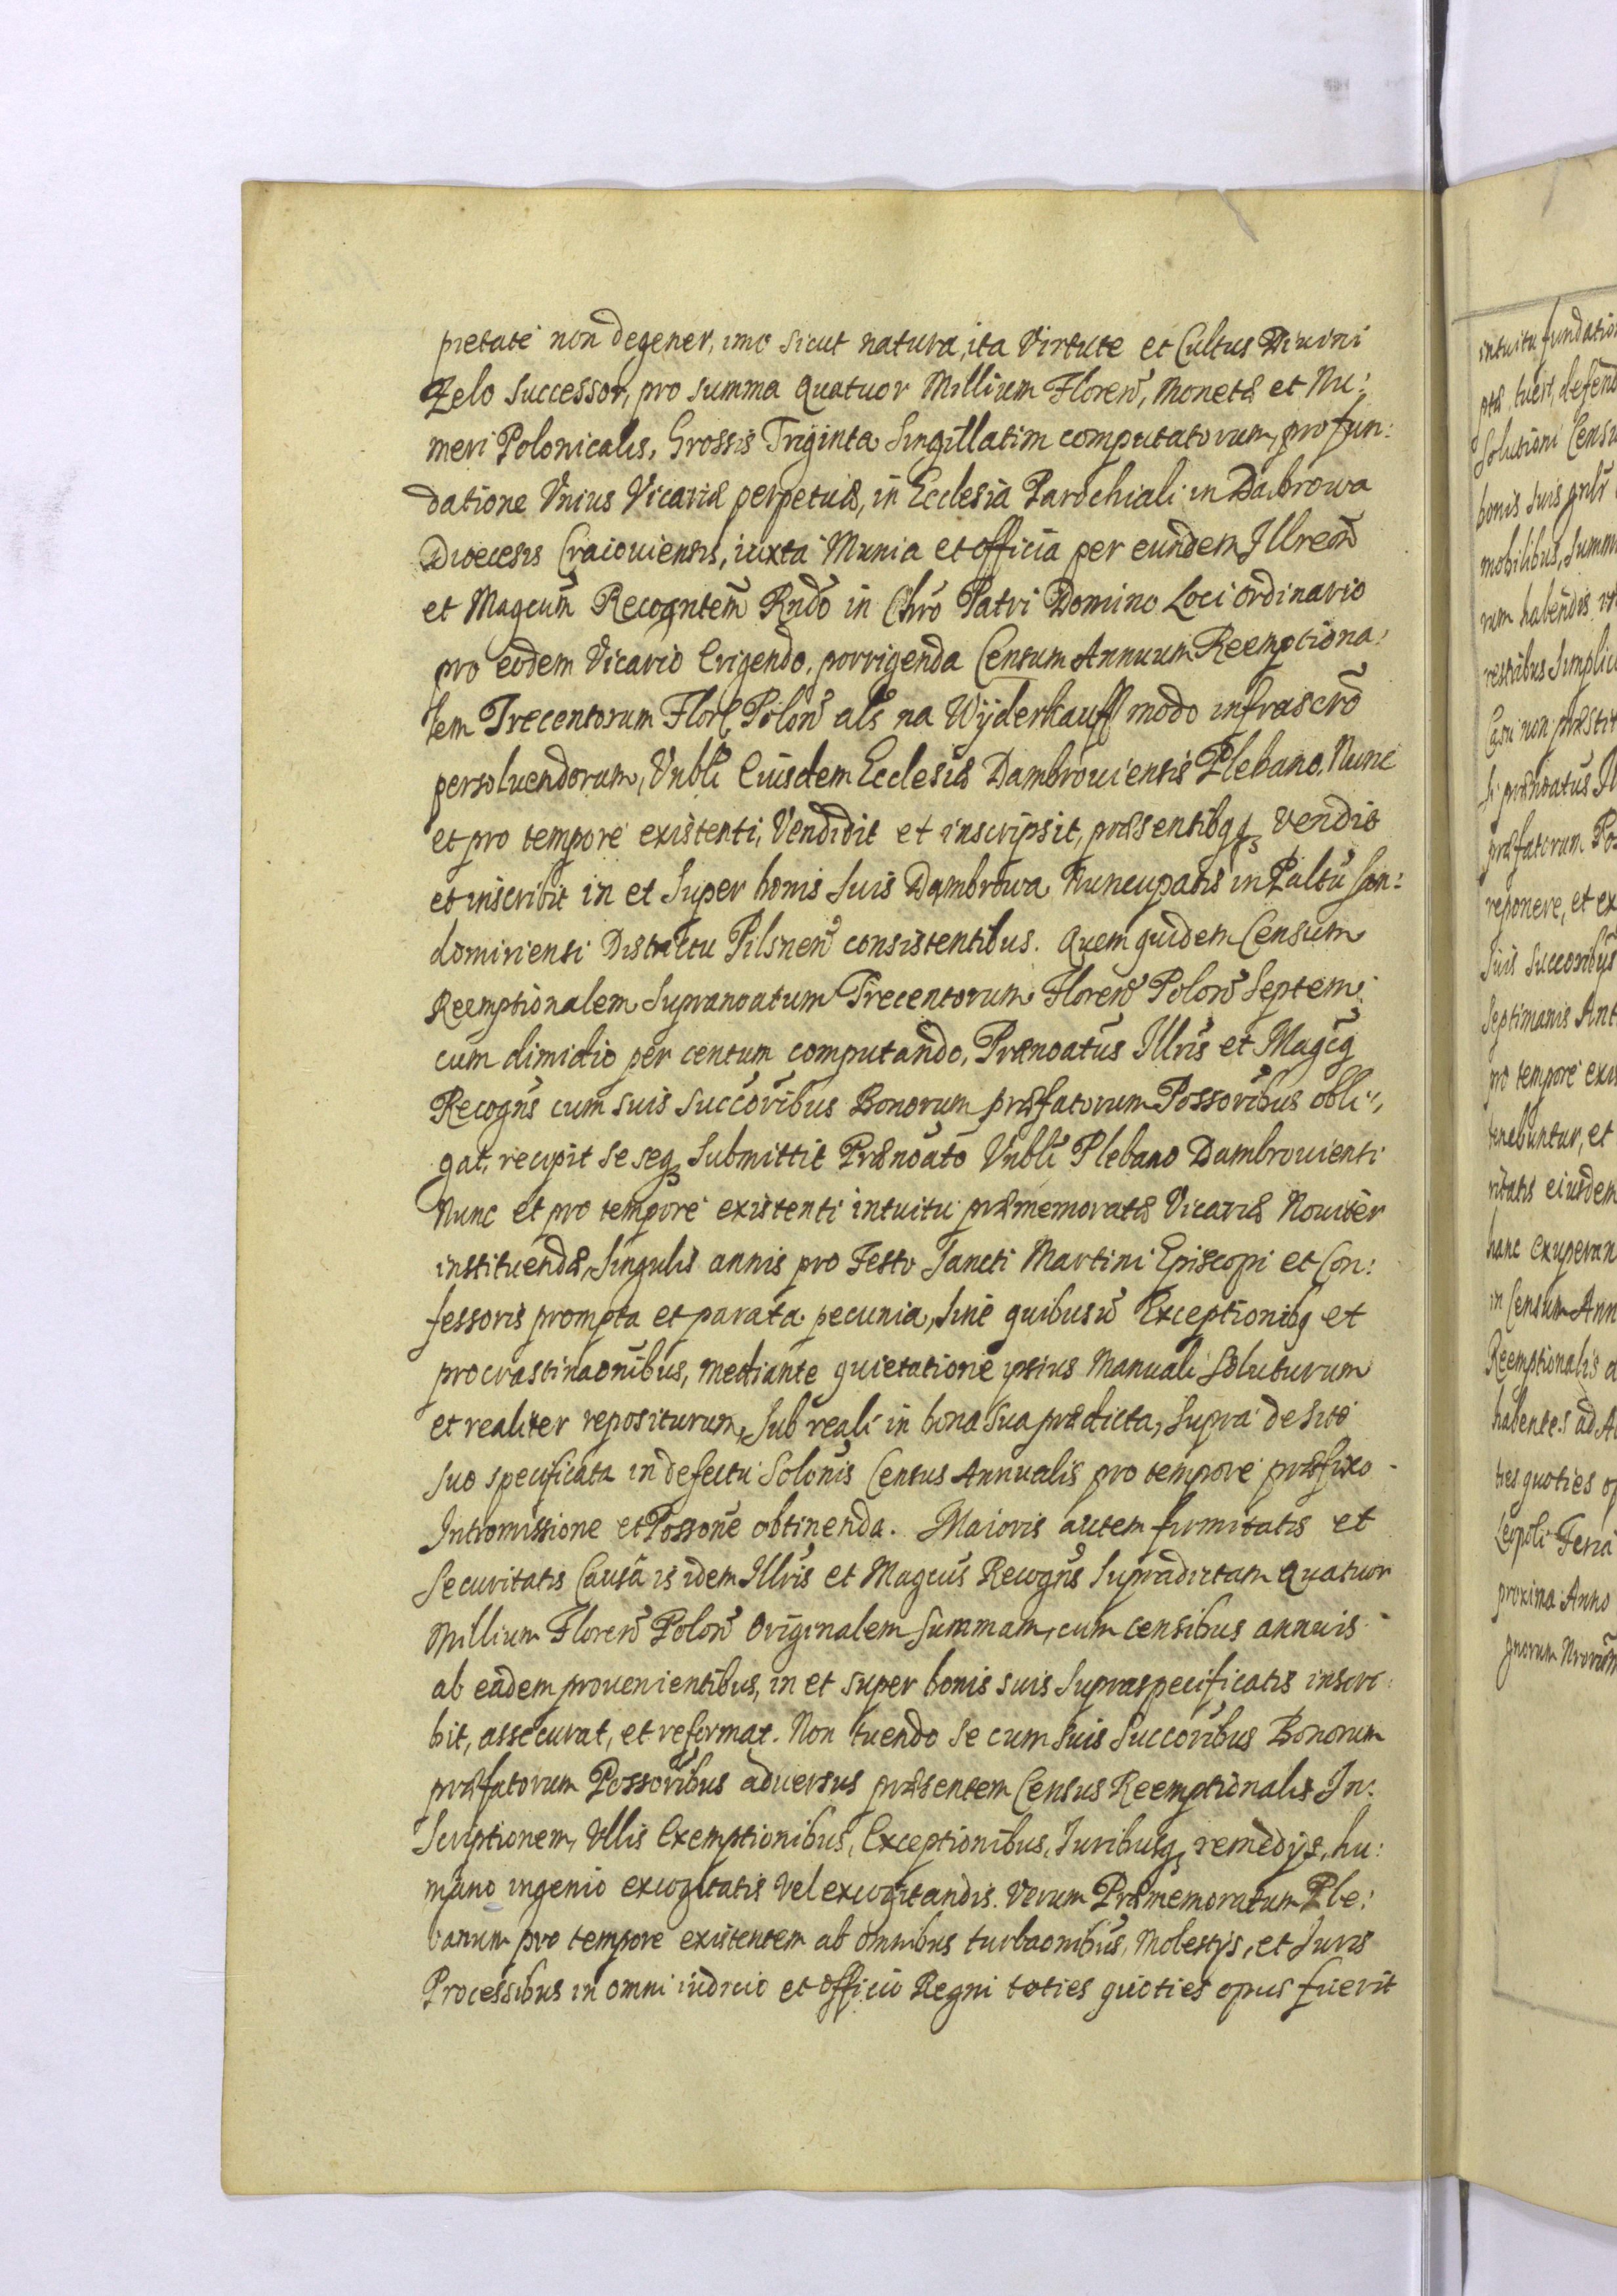 pietate non degener, imo sicut natura, ita Virtute et Cultus Diuini
Zelo Successor, pro summa quatuor Millium Floren̄, Monetæ et Nu:
meri Polonicalis, Grossis Triginta Singillatim computatorum, pro fun:
datione Vnius Vicariæ perpetuæ, in Ecclesia Parochiali in Dąbrowa
Dioecesis Cracouiensis, iuxta Munia et officia per eundem Illrem̄
et Magcum̄ Recogntem̄ Rndō in Chrō Patri Domino Loci ordinario
pro eodem Vicario Erigendo, porrigenda Censum Annuum Reemptiona:
lem Trecentorum Flor Polon̄ als na Wÿderkauff modo infrascrō
persoluendorum, Vnbli Eiusdem Ecclesiæ Dambrouiensis Plebano, Nunc
et pro tempore existenti, Vendidit et inscripsit, præsentibqq vendit
et inscribit in et Super bonis Suis Dąmbrowa Nuncupatis in Paltū San:
domiriensi Districtu Pilsnen̄ consistentibus. Quem quidem Censum
Reemptionalem Supranoatum Trecentorum Floren̄ Polon̄ Septem
cum dimidio per centum computando, Prænoatus̄ Illris̄ et Magcq̄
Recogns̄ cum suis succōribus Bonorum præfatorum Possōribus obli:,
gat, recipit se seq Submittit Prænoatō Vnbli Plebano Dambrouiensi
Nunc et pro tempore existenti intuitu præmemoratæ Vicariæ Nouiter
instituendæ, Singulis annis pro Festo Sancti Martini Episcopi et Con:
fessoris prompta et parata pecunia, sine quibusū Exceptionibq et
procrastinaōnibus, mediante quietatione ipsius Manuali Soluturum
et realiter repositurum, Sub reali in bona Sua prædicta, Supra de sitō
suo specificata in defectu Solōnis Census Annualis pro tempore præfixo
Intromissione et Possonē obtinenda. Maioris autem firmitatis et
Securitatis Causa is idem Illris̄ et Magcus̄ Recogns̄ Supradictam quatuor
Millium Floren̄ Polon̄ Originalem Summam, cum censibus annuis
ab eadem prouenientibus, in et super bonis suis Supraspecificatis inscri:
bit, assecurat, et reformat. Non tuendo se cum Suis Succōribus Bonorum
præfatorum Possōribus aduersus præsentem Census Reemptionalis In:
Scriptionem, Vllis Exemptionibus, Exceptionibus, Iuribusq remedÿs, hu:
mano ingenio excogitatis Vel excogitandis. Verum Præmemoratum Ple:
banum pro tempore existentem ab omnibus turbaōnibus, Molestÿs, et Juris
Processibus in omni iudicio et officio Regni toties quoties opus fuerit
intuitu fundatio
ptæ tueri, defend
Solutioni Censu
bonis suis gnlr
mobilibus, Summ
rum habendis
restribus Simplici
Casu non præstit
Si prænoatus Il
præfatorum Pos
reponere, et ex
Suis Succoribus
Septimanis Ant
pro tempore exis
tenebuntur, et
ritatis eiusdem
hanc exuperan
in Censum Ann
Reemptionalis a
habentes ad A
ties quoties op
Leopoli Feria
proxima Anno
gnorum Nrorum̄